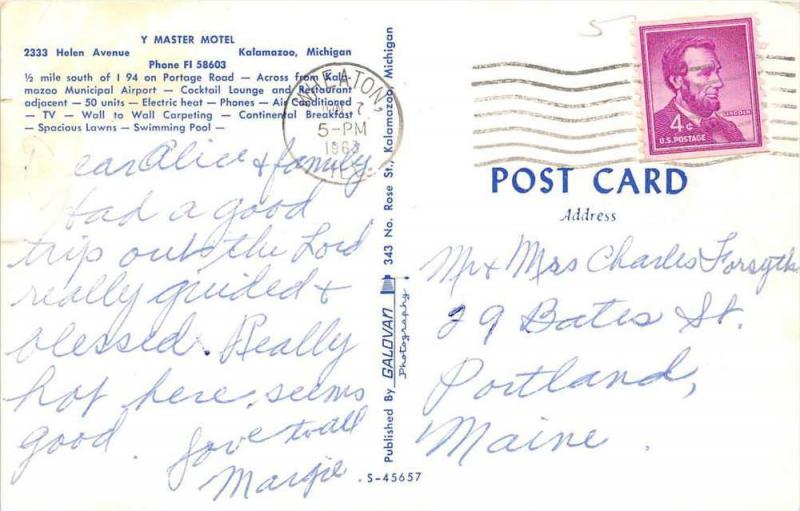 Y MASTER MOTEL
2333 Helen Avenue Kalamazoo, Michigan
Phone FI 58603
½ mile south of I 94 on Portage Road — Across from Kala-
mazoo Municipal Airport — Cocktail Lounge and Restaurant
adjacent — 50 units — Electric heat — Phones — Air Conditioned
— TV — Wall to Wall Carpeting — Continental Breakfast
— Spacious Lawns — Swimming Pool —
Dear Alice & family
Had a good
trip out the Lord
really guided &
blessed. Really
hot here, seems
good.
Love to all
Margie
Published By GALOVAN Photography. 343 No. Rose St., Kalamazoo, Michigan
S-45657
WHEATON,
7
5-PM
ILL.
LINCOLN
4¢
U.S. POSTAGE
POST CARD
Address
Mr & Mrs Charles Forsyth
29 Bates St.
Portland,
Maine.